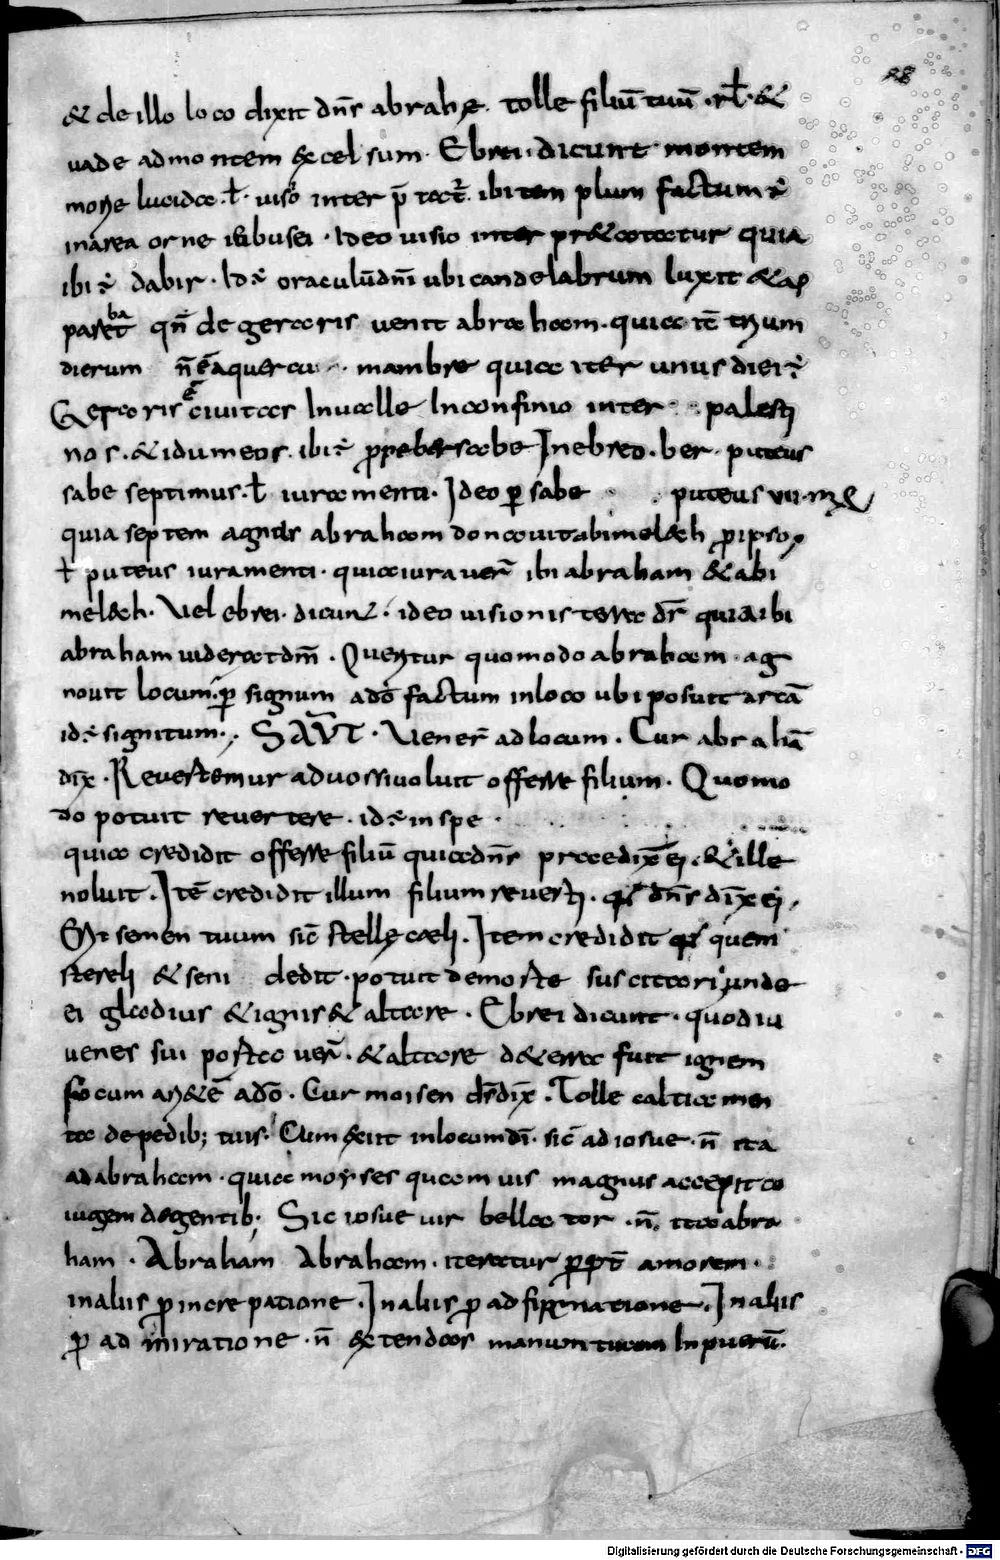 28
& de illo loco dixit dn̄s abrahę. tolle filiū tuū .rł. &
uade ad montem excelsum. Ebrei. dicunt montem
morię lucida .ł. uisio inter p̄tat̄. ibi templum factum ē
in area orne iebusei. Ideo uisio inter pr&atatur quia
ibi ē dabir. Id ē oraculū dn̄i ubi candelabrum luxit & ap
pareba qn̄ de geraris uenit abraham. quia iter trium
dierum n̄ ē a quercu mambre quia iter unius diei ē
Geraris ciuitas In ualle In confinio inter palesti
nos. & idumeos. ibi ē prope bersabe In ebreo. ber. puteus
sabe septimus. ł iuramenti. Ideo per sabe puteus uii.
quia septem agnas abraham donauit abimelech pro ipso
ł puteus iuramenti. quia iurauer̄ ibi abraham & abi
melech. Vel ebrei. dicunt. ideo uisionis terra dr̄ quia ibi
abraham uiderat dm̄. Queritur quomodo abraham ag
nouit locum. per signum a dō factum in loco ubi posuit arcā
id ē signitum. SAVT. Vener̄ ad locum. Cur abrahā
dix̄. Reuertemur ad uos si uoluit offerre filium. Quomo
do potuit reuertere. id ē in spe
quia credidit offerre filiū quia dn̄s praedix̄ ei. & ille
noluit. Itē credidit illum filium reuerti. quia dn̄s dix̄ ei,
Erit semen tuum sic̄ stellę cęli. Item credidit quod quem
stereli & seni dedit. potuit de morte suscitari unde
ei gladius & ignis & altare. Ebrei dicunt. quod iu
uenes sui postea uer̄. & altare de terra fuit ignem
secum a dō. Cur moisen dr̄ dix̄. Tolle caltiamen
ta de pedib; tuis. Cum exiit in locum dī. sic̄ ad iosue. n̄ ita
ad abraham. quia moyses quam uis magnus accepit co
iugem de gentib; Sic iosue uir bellator. n̄ ita abra
ham. Abraham Abraham. iteratur propt̄ amorem.
in aliis pro increpatione. In aliis pro adfirmatione. In aliis
pro admiratione. n̄ extendas manum tuam In puerū.